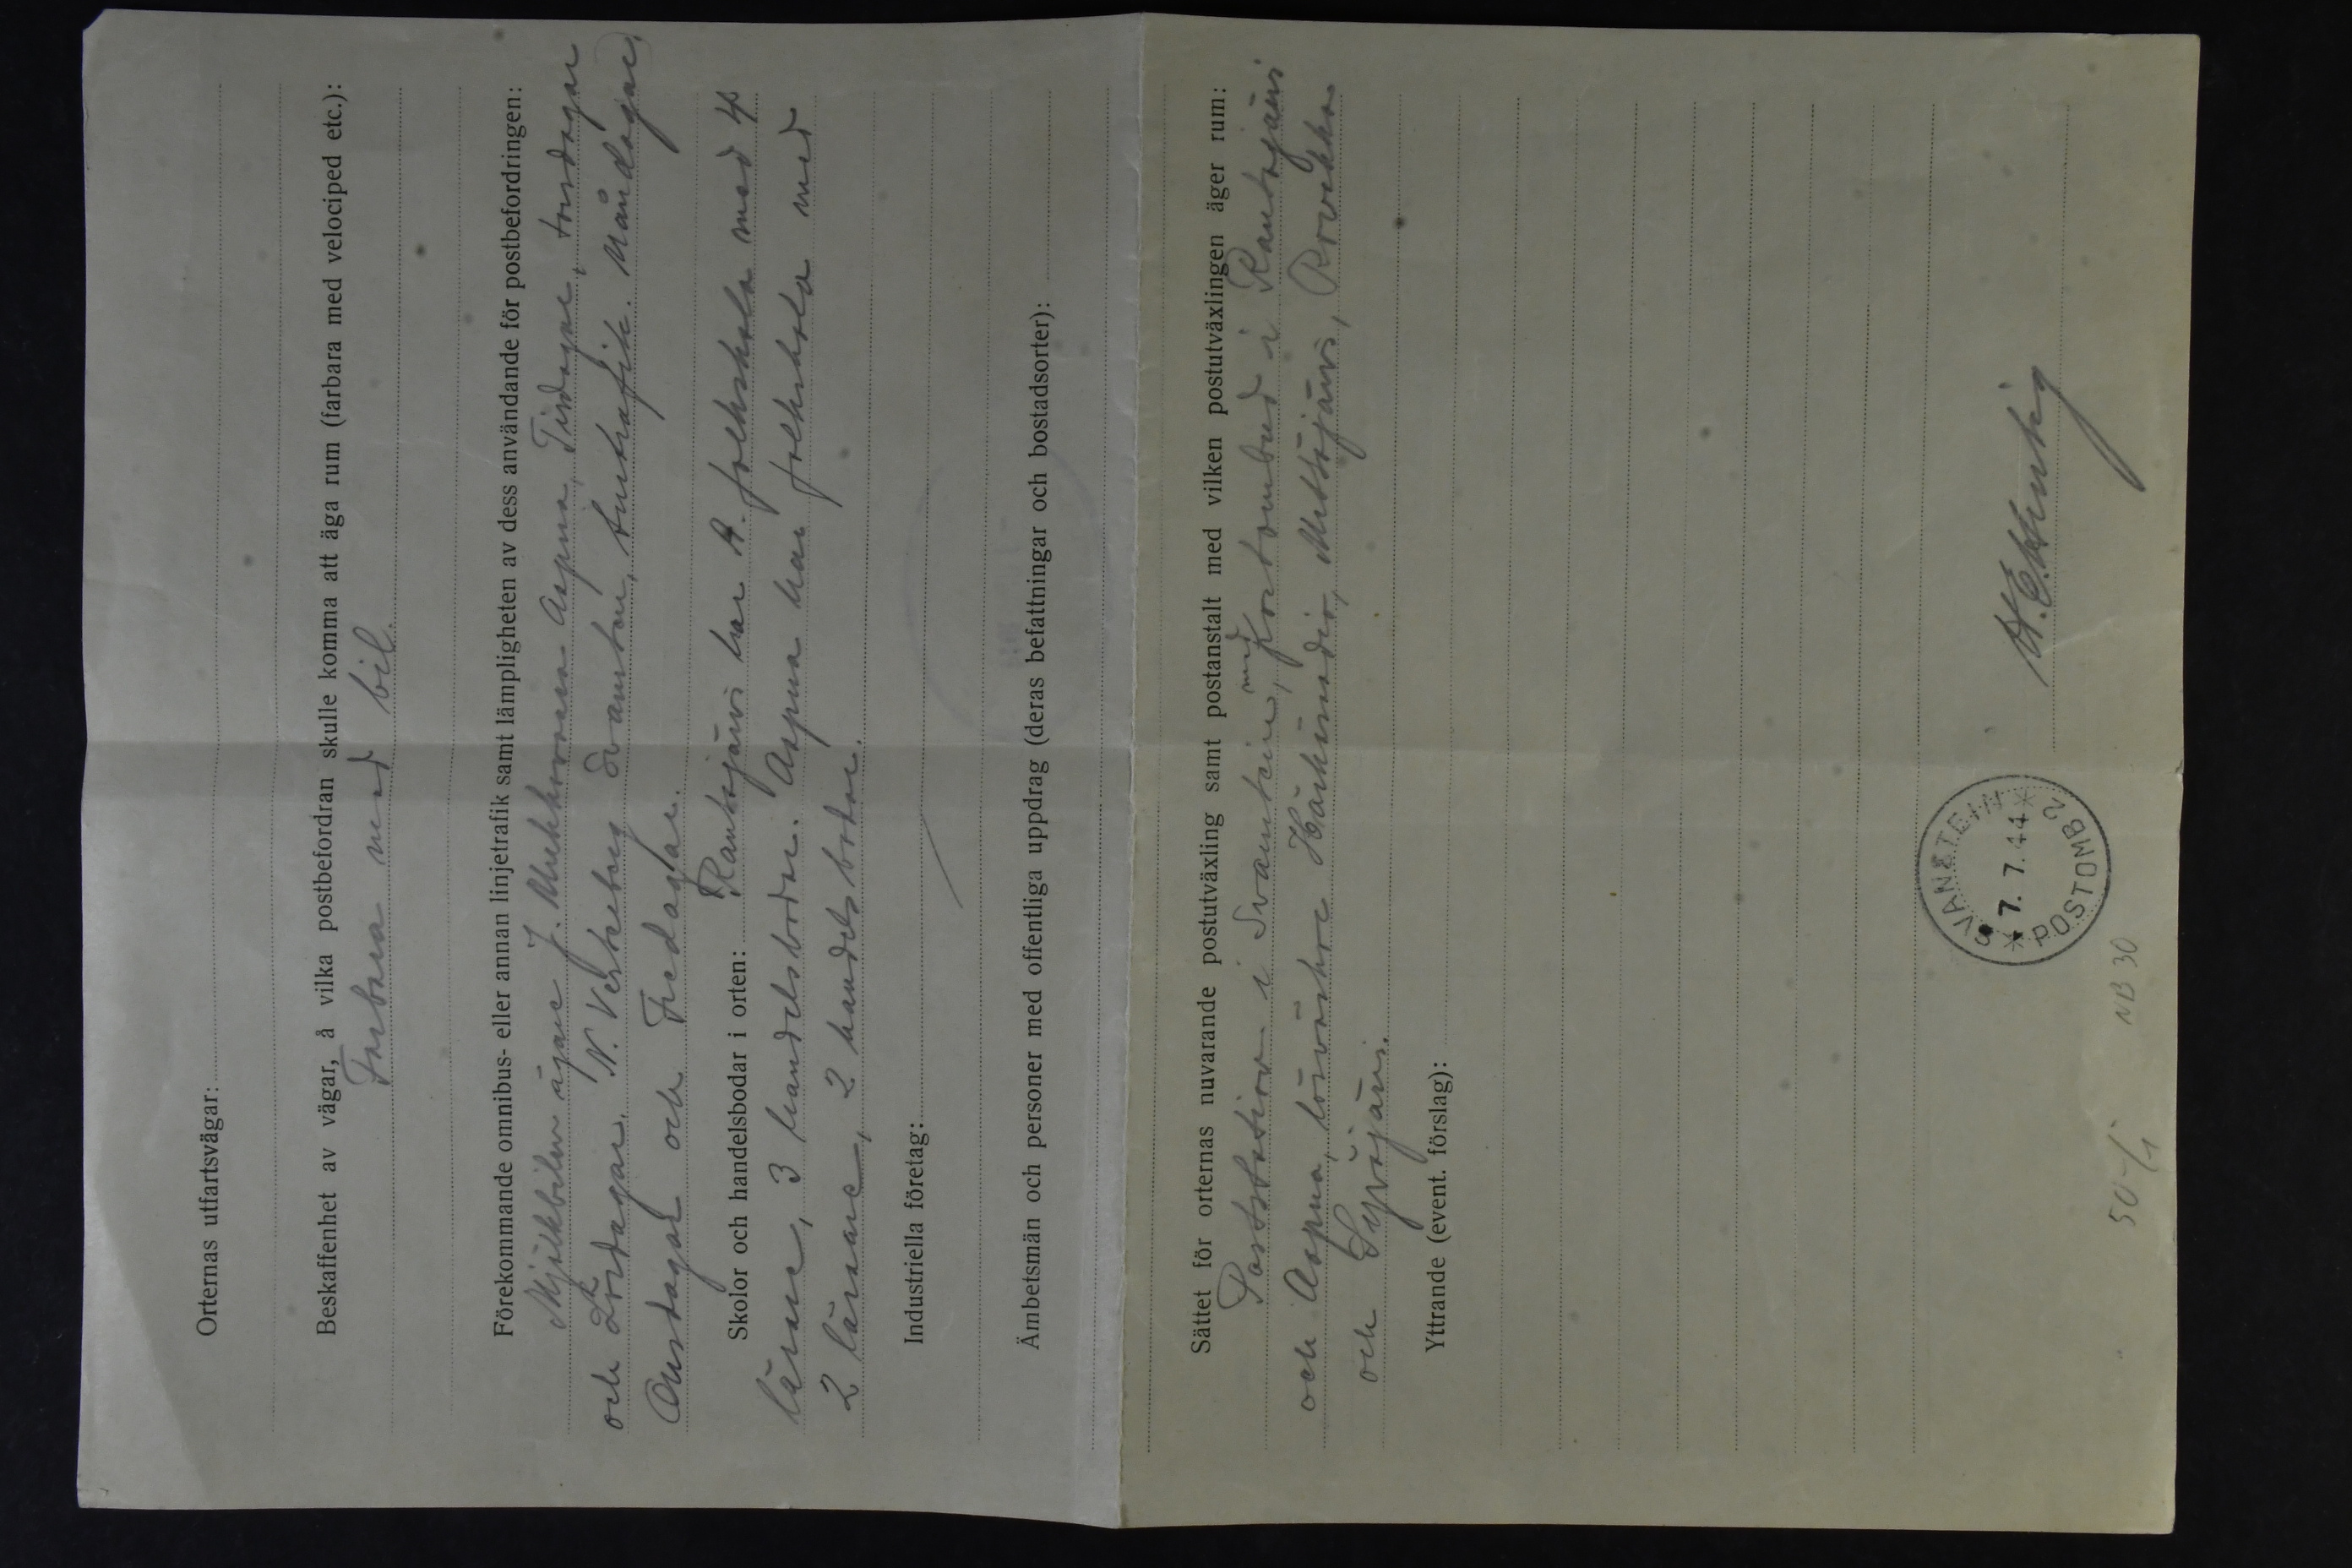 Orternas utfartsvägar:
Beskaffenhet av vägar, å vilka postbefordran skulle komma att äga rum (farbara med velociped etc.):
Farbara med bil.
Förekommande omnibus- eller annan linjetrafik samt lämpligheten av dess användande för postbefordringen:
Mjölkbilen ägare J. Aapua, Tisdagar, torsdagar
och Lördagar. N. Svanstein, Måndagar
Onsdagar och Fredagar.
Skolor och handelsbodar i orten: Rantajärvi har folkskola med 4
lärare, 3 handelsbodar. Aapua har folkskola med
2 lärare, 2 handelsbodar.
Industriella företag:
Ämbetsmän och personer med offentliga uppdrag (deras befattningar och bostadsorter):
Sättet för orternas nuvarande postutväxling samt postanstalt med vilken postutväxlingen äger rum:
Poststation i Svanstein, med Postombud i Rantajärvi
och Aapua, lösväskor Mettäjärvi,
och Syväjärvi.
Yttrande (event. förslag):
SVANSTEIN
7.7.44
POSTOMB 2
50-/1 NB 30